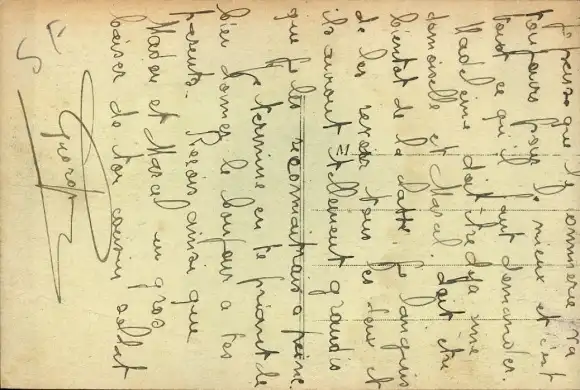 Je pense que le commerce va
toujours pour le mieux et c'est
tout ce qu'il faut demander
Madeleine doit être deja une
demoiselle et Marcel doit être
bientot de la Je languis
de les revoir tous les deux et
ils auront tellement grandis
que je les reconnaitrais a peine
Je termine en te priant de
bien donner le bonjour a tes
parents. Reçois ainsi que
et Marcel un gros
baiser de ton cousin soldat